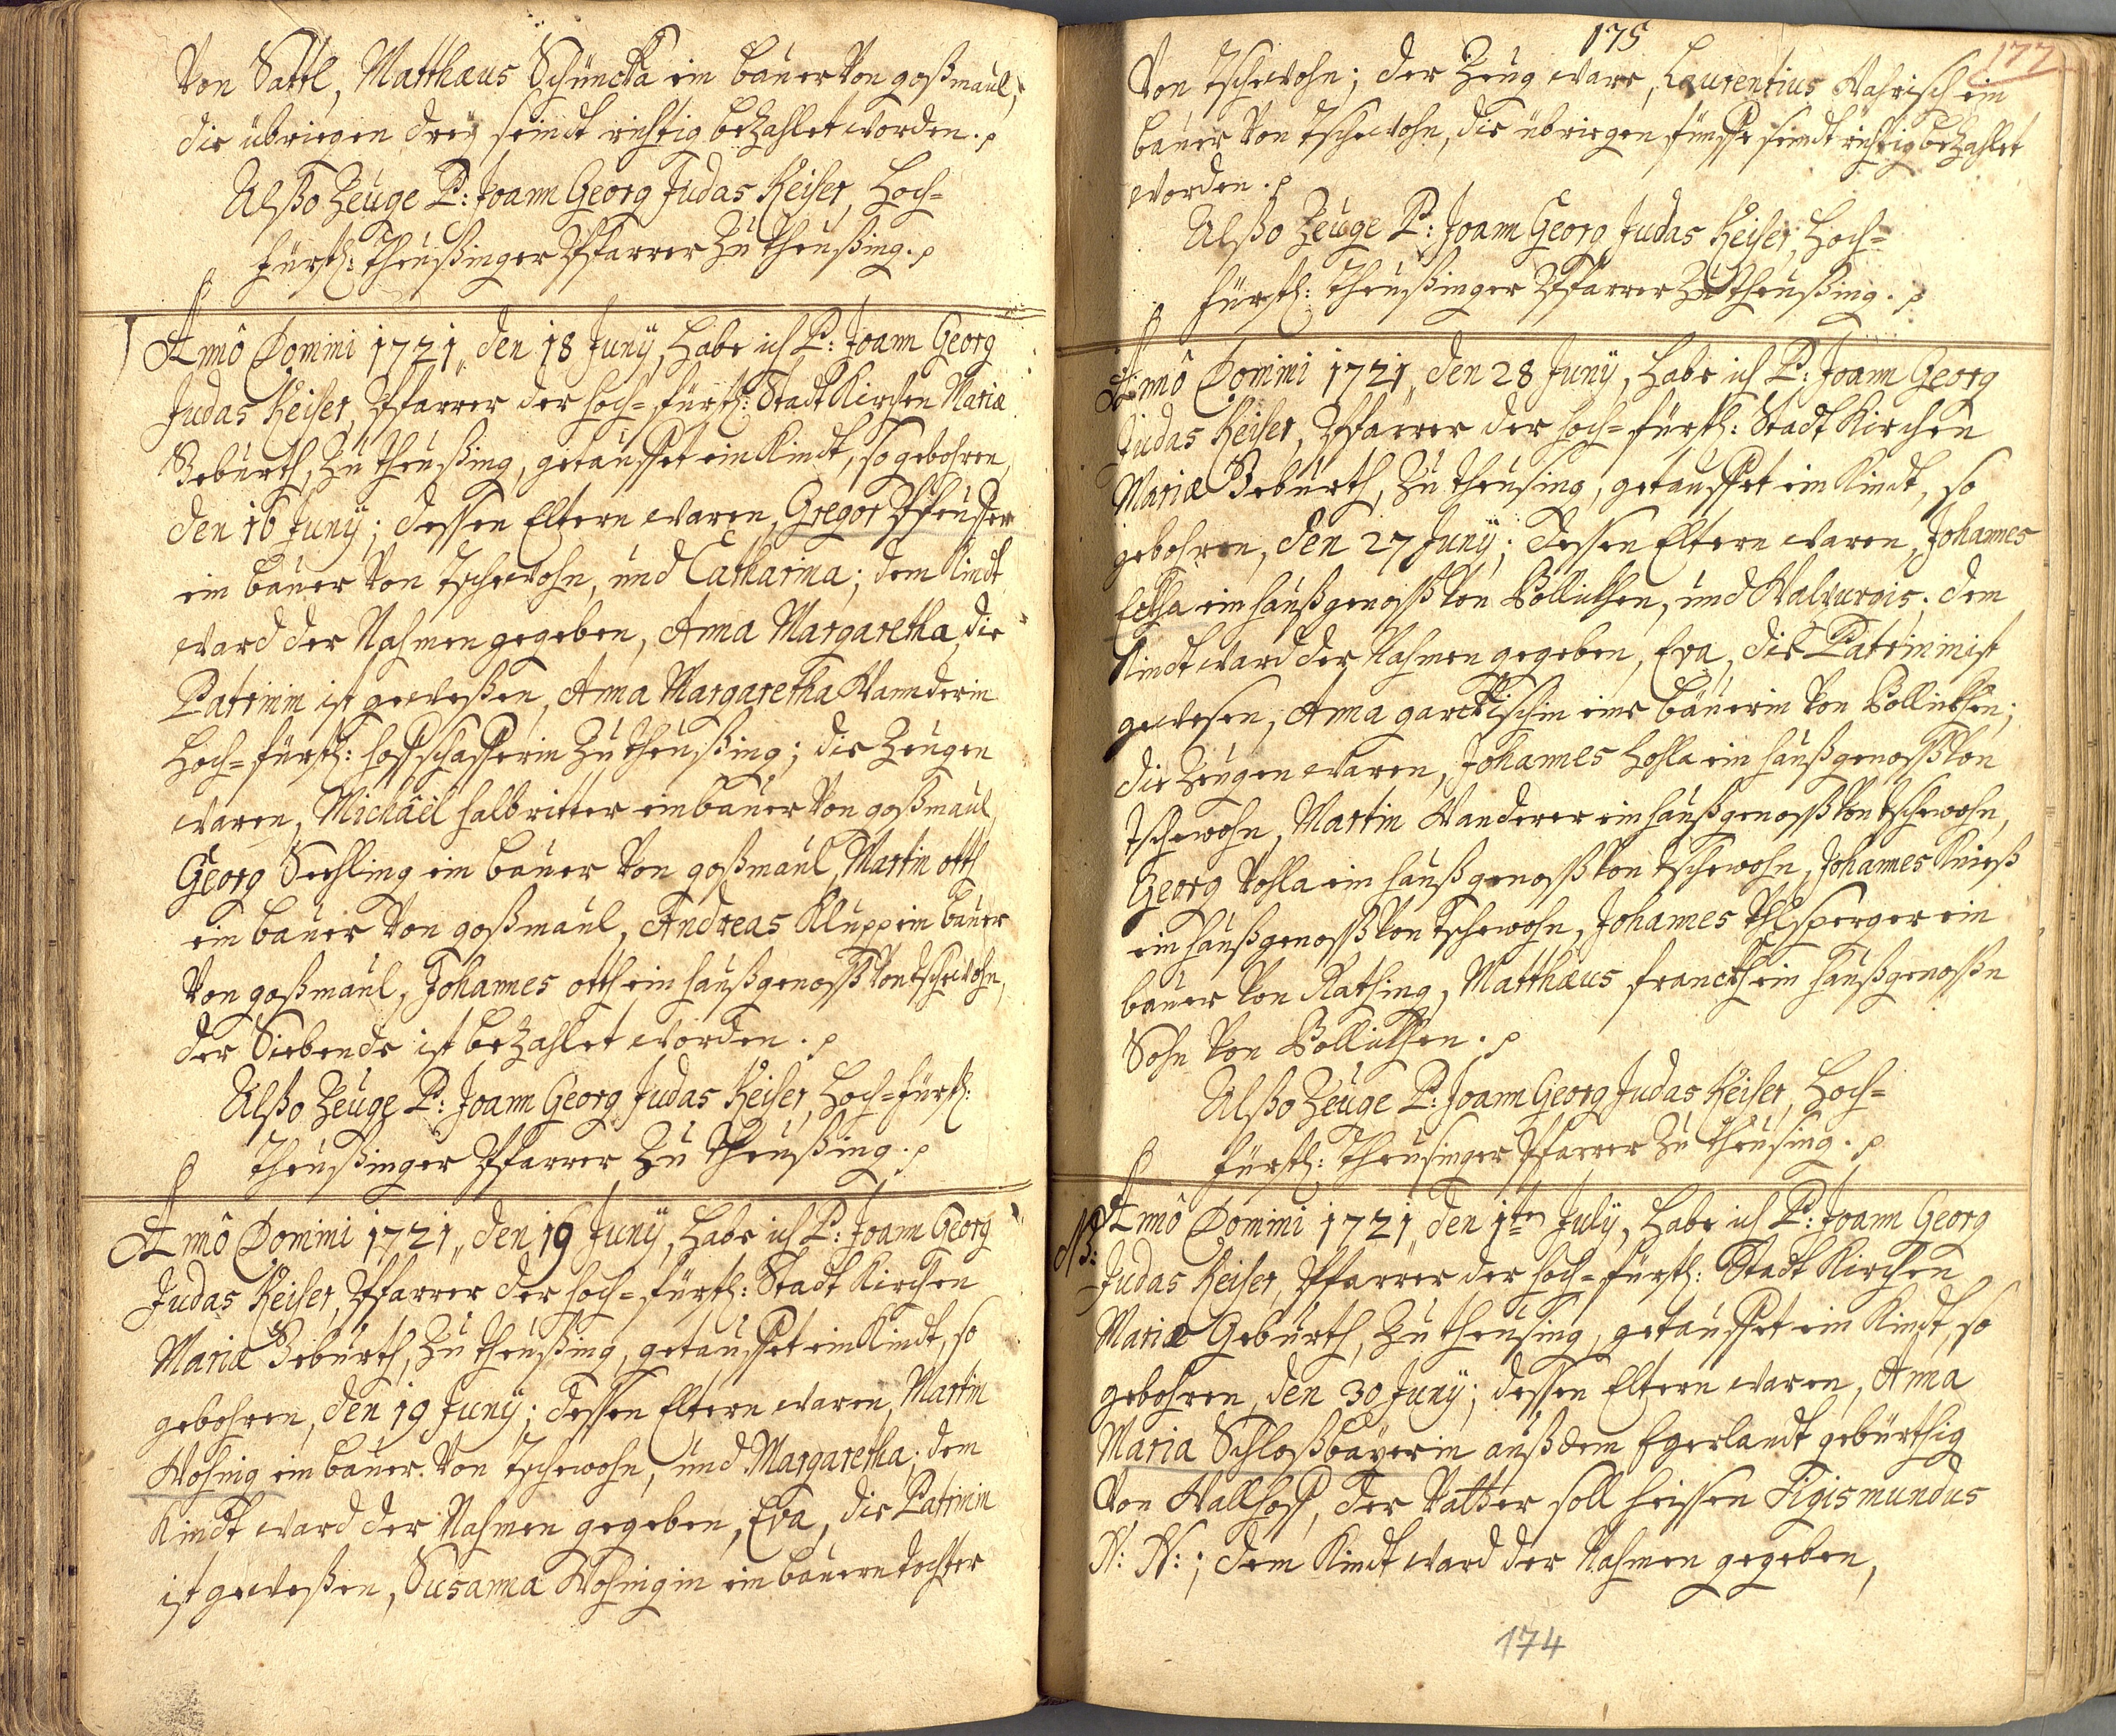 Von Sattl, Matthæus Schüncka ein bauer Von goßmaul,
die übriegen dreÿ seindt richtig bezahlet worden.
Alßo Zeuge P: Joann Georg Judas Keiser, Hoch=
fürstl: Theußinger Pfarrer Zu Theußing.
Annô Domini 1721, den 18 Junÿ, Habe ich P: Joann Georg
Judas Keiser, Pfarrer der Hoch=fürstl: Stadt Kirchen Mariæ
Geburth, Zu Theußing, getauffet ein Kindt, so gebohren,
den 16 Junÿ; dessen Eltern waren, Gregor Pfeuffer
ein bauer Von Tschewohn, und Catharina; dem Kindt
ward der Nahmen gegeben, Anna Margaretha, die
Patrinin ist geweßen, Anna Margaretha Wannderin
Hoch=fürstl: hoffschafferin Zu Theußing; die Zeugen
waren, Michäël halbritter ein bauer Von goßmaul,
Georg Seehling ein bauer Von goßmaul, Martin otth
ein bauer Von goßmaul, Andreas Klupp ein bauer
Von goßmaul, Johannes otth ein haußgenoß Von Tschewohn,
der Siebende ist bezahlet worden.
Alßo Zeuge P: Joann Georg Judas Keiser, Hoch=fürstl:
Theußinger Pfarrer Zu Theußing.
Annô Domini 1721, den 19 Junÿ, Habe ich P: Joann Georg
Judas Keiser, Pfarrer der Hoch=fürstl: Stadt Kirchen
Mariæ Gebürth, Zu Theußing, getauffet ein Kindt, so
gebohren, den 19 Junÿ; dessen Eltern waren, Martin
Wohnig ein bauer Von Tschewohn, und Margaretha; dem
Kindt ward der Nahmen gegeben, Eva, die Patrinin
ist geweßen, Susanna Wohnigin ein bauern tochter
175
177
Von Tschewohn; der Zeug ware, Laurentius Wahrisch ein
bauer Von Tschewohn, die übriegen fünffe seindt richtig bezahlet
worden.
Alßo Zeuge P: Joann Georg Judas Keiser, Hoch=
fürstl: Theußinger Pfarrer Zu Theußing.
Annô Domini 1721, den 28 Junÿ, Habe ich P: Joann Georg
Judas Keiser, Pfarrer der Hoch=fürstl: Stadt Kirchen
Mariæ Gebürth, Zu Theusing, getauffet ein Kindt, so
gebohren, den 27 Junÿ; dessen Eltern waren, Johannes
ein haußgenoß Von Pollickhen, und Walburgis. dem
Kindt ward der Nahmen gegeben, Eva, die Patrinin ist
gewesen, Anna garckischin eine bäuerin Von Pollickhen;
die Zeugen waren, Johannes Hohla ein haußgenoß Von
Tschewohn, Martin Wanderer ein haußgenoß Von Tschewohn,
Georg Vohla ein haußgenoß Von Tschewohn, Johannes Knieß
ein haußgenoß Von Tschewohn, Johannes ein
bauer Von Rathing, Matthæus franckh ein haußgenoßn
Sohn Von Pollickhen.
Alßo Zeuge P: Joann Georg Judas Keiser, Hoch=
fürstl: Theusinger Pfarrer Zu Theusing.
NB: Annô Domini 1721, den 1ten Julÿ, Habe ich P: Joann Georg
Judas Keiser, Pfarrer der Hoch=fürstl: Stadt Kirchen
Mariæ Gebürth, Zu Theusing, getauffet ein Kindt, so
gebohren, den 30 Junÿ; dessen Eltern waren, Anna
Maria Schloßbaÿerin auß dem Egerlandt gebürthig
Von Wallhoff, der Vatter soll heissen Sigismundus
N: N:; dem Kindt ward der Nahmen gegeben,
174